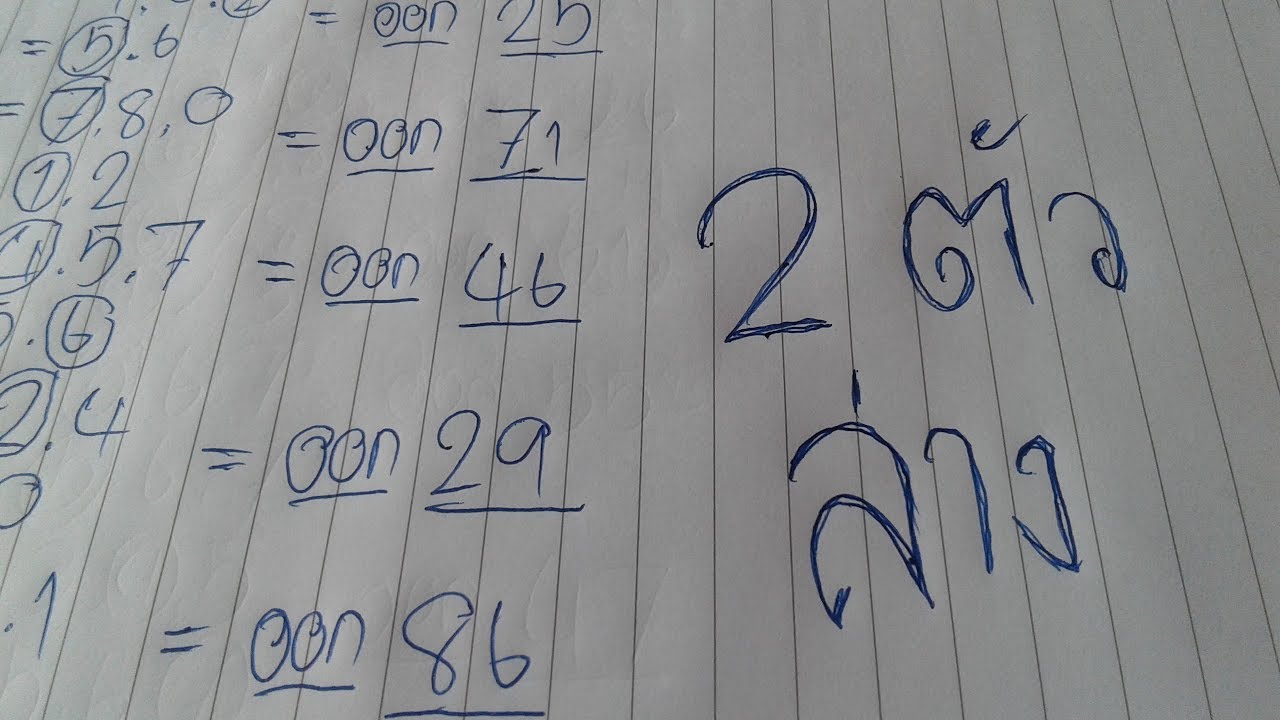 = ออก 25
= 5.6
= 7.8.0
= ออก 71
1.2
4.5.7 = ออก 46
5.6
2.4
= ออก 29
0
.1 = ออก 86
2 ตัว
ล่าง